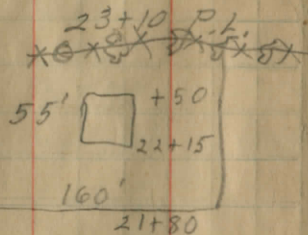 23+10 P.L.
55' +50
22+15
160'
21+80